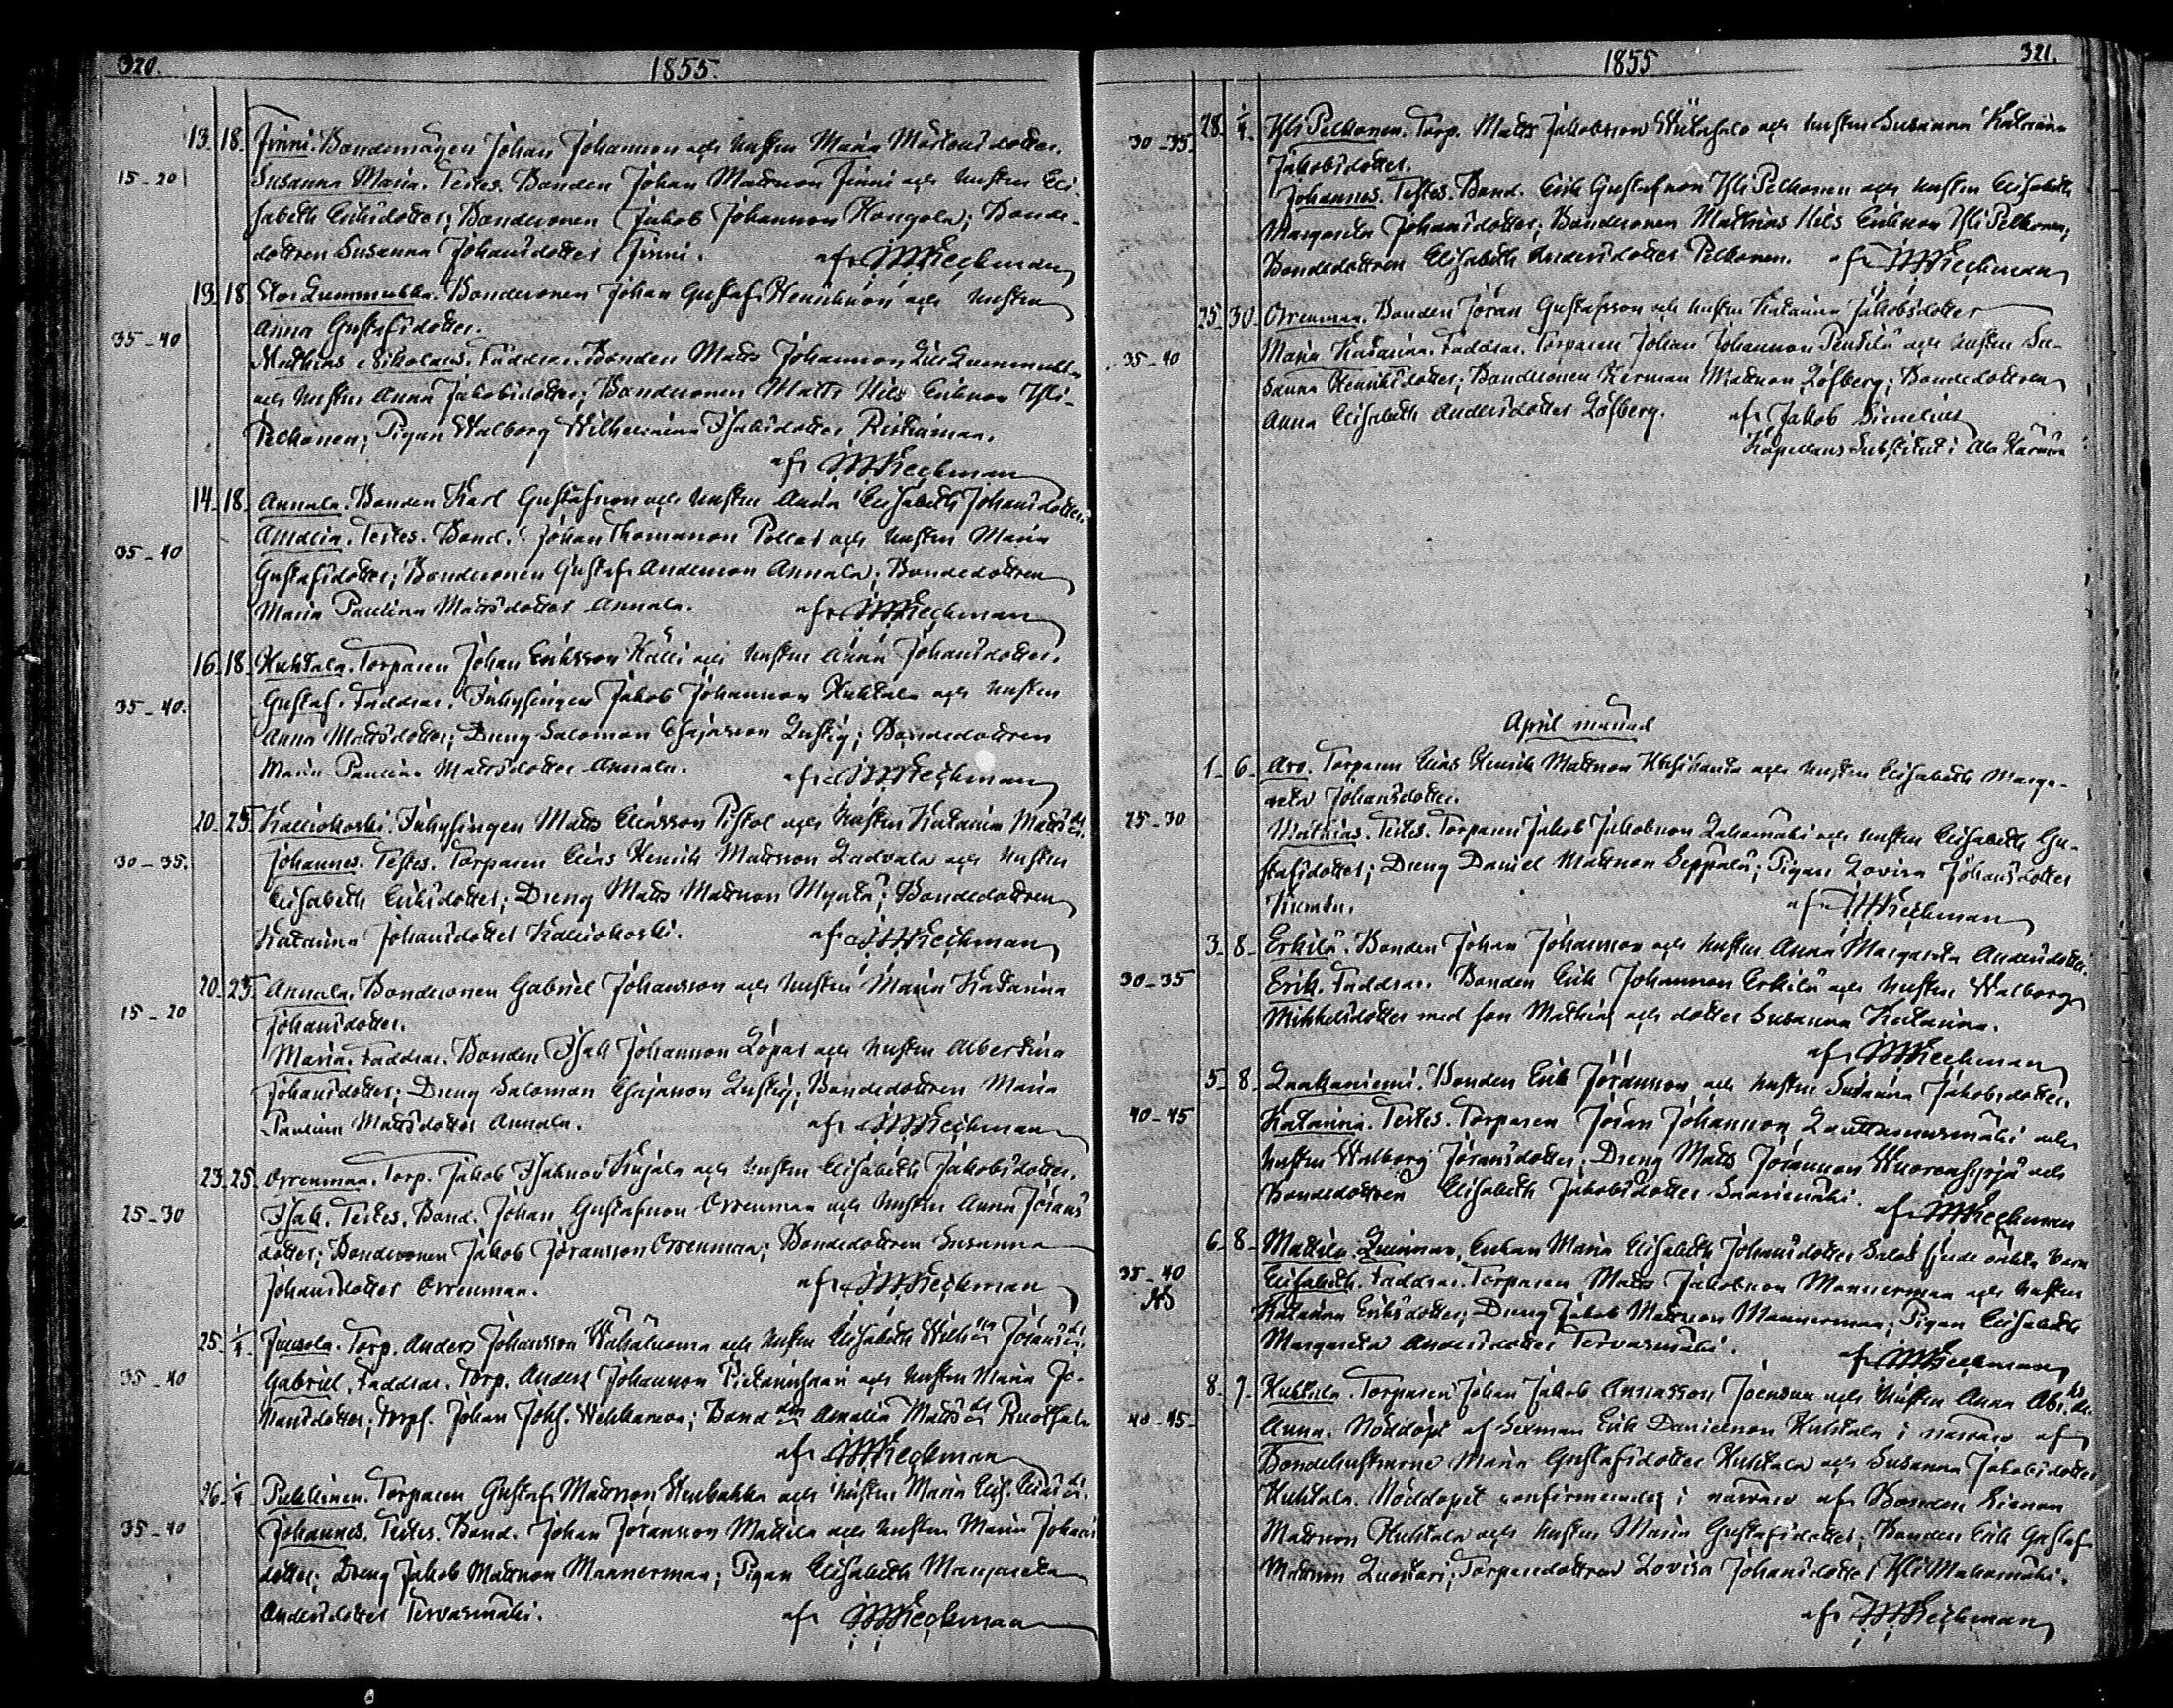 320.
1855.
13. 18. Finni. Bondemågen Johan Johansson och hustru Maria Mårtensdotter.
15-20 Susanna Maria. Testes. Bonden Johan Mattsson Finni och hustru Eli-
sabeth Eriksdotter; Bondesonen Jakob Johansson Kangola; Bonde-
dottren Susanna Johansdotter Finni. af
13. 18. Stor Lummukka. Bondesonen Johan Gustaf Henriksson och hustru
Anna Gustafsdotter.
35-40 Mathias Nikolaus. Faddrar. Bonden Matts Johansson Lill Lummukka
och hustru Anna Jakobsdotter; Bondesonen Matts Nils Eriksson Yli-
Pelkonen; Pigan Walborg Wilhelmina Isaksdotter Ristimaa.
af
14. 18. Annala. Bonden Karl Gustafsson och hustru Anna Elisabeth Johansdotter.
35-40 Amalia. Testes. Bond. Johan Thomasson Pollari och hustru Maria
Gustafsdotter; Bondesonen Gustaf Andersson Annala; Bondedottren
Maria Paulina Mattsdotter Annala. af
16. 18. Huhtala. Torparen Johan Eriksson Kalli och hustru Anna Johansdotter.
35-40. Gustaf. Faddrar. Inhysingen Jakob Johansson Huhtala och hustru
Anna Mattsdotter; Dreng Salomon Esajasson Lustig; Bondedottren
Maria Paulina Mattsdotter Annala. af
20. 25. Kalliokoski. Inhysingen Matts Eliasson Pistol och hustru Katarina Mattsdr.
30-35. Johannes. Testes. Torparen Elias Henrik Mattsson Ladvala och hustru
Elisabeth Eriksdotter; Dreng Matts Mattsson Mynta; Bondedottren
Katarina Johansdotter Kalliokoski. af
20. 25. Annala. Bondesonen Gabriel Johansson och hustru Maria Katarina
Johansdotter.
15-20 Maria. Faddrar. Bonden Isak Johansson Löpas och hustru Albertina
Johansdotter; Dreng Salomon Esajasson Lustig; Bondedottren Maria
Paulina Mattsdotter Annala. af
23. 25. Orrenmaa. Torp. Jakob Isaksson Kujala och hustru Elisabeth Jakobsdotter.
25-30 Isak. Testes. Bond. Johan Gustafsson Orrenmaa och hustru Anna Jörans-
dotter; Bondesonen Jakob Jöransson Orrenmaa; Bondedottren Susanna
Johansdotter Orrenmaa. af
25. 1/4 Juusola. Torp. Anders Johansson Wähäluoma och hustru Elisabeth Jöransdr.
35-40 Gabriel. Faddrar. Torp. Anders Johansson och hustru Maria Jo-
hansdotter; Torps. Johan Johs. Wehkaoja; Bond dr. Amalia Mattsdr. Ruotsala
af
26. 1/4 Puhkinen. Torparen Gustaf Mattsson Stenbakka och hustru Maria Elis. Eliasdr.
35-40 Johannes. Testes. Bond. Johan Jöransson Mattila och hustru Maria Johans
dotter; Dreng Jakob Mattsson Mannermaa; Pigan Elisabeth Margareta
Andersdotter Tervasmäki. af
1855
321.
28. 1/4 Yli Pelkonen. Torp. Matts Jakobsson och hustru Susanna Katarina
30-35. Jakobsdotter.
Johannes. Testes. Bond. Erik Gustafsson Yli Pelkonen och hustru Elisabeth
Margareta Johansdotter; Bondesonen Mathias Nils Eriksson Yli Pelkonen;
Bondedottren Elisabeth Andersdotter Pelkonen. af
25. 30. Orrenmaa. Bonden Jöran Gustafsson och hustru Katarina Jakobsdotter
35-40 Maria Katarina. Faddrar. Torparen Johan Johansson Penttilä och hustru Su-
sanna Henriksdotter; Bondesonen Herman Mattsson Löfberg; Bondedottren
Anna Elisabeth Andersdotter Löfberg. af Jakob Simelius
Kapellans Substitut i Ala Härmä
April månad
1. 6. Aro. Torparen Elias Henrik Mattsson och hustru Elisabeth Marga-
reta Johansdotter.
25-30 Mathias. Testes. Torparen Jakob Jakobsson Lakamäki och hustru Elisabeth Gu-
stafsdotter; Dreng Daniel Mattsson Seppälä; Pigan Lovisa Johansdotter
af
3. 8. Erkilä. Bonden Johan Johansson och hustru Anna Margareta Andersdotter.
30-35 Erik. Faddrar. Bonden Erik Johansson Erkilä och hustru Walborg
Mikkelsdotter med son Mathias och dotter Susanna Katarina.
af
5. 8. Laakaniemi. Bonden Erik Jöransson och hustru Susanna Jakobsdotter.
40-45 Katarina. Testes. Torparen Jöran Johansson och
hustru Walborg Jöransdotter; Dreng Matts Jöransson och
Bondedottren Elisabeth Jakobsdotter Saarimäki. af
6. 8. Mattila. Quinnan, Enkan Maria Elisabeth Johansdotter Salos oäkta barn
35-40 Elisabeth. Faddrar. Torparen Matts Jakobsson Mannermaa och hustru
NB Katarina Eriksdotter; Dreng Jakob Mattsson Mannermaa; Pigan Elisabeth
Margareta Andersdotter Tervasmäki. af
8. 9. Huhtala. Torparen Johan Jakob Joensuu och hustru Anna
40-45. Anna. Nöddöpt af Sexman Erik Danielsson Huhtala i närvaro af
Bondehustrurne Maria Gustafsdotter Huhtala och Susanna Jakobsdotter
Huhtala. Nöddopet confirmerades i närvaro af Bonden Simon
Mattsson Huhtala och hustru Maria Gustafsdotter; Bonden Erik Gustaf
Mattsson Luostari; Torparedottren Lovisa Johansdotter Yli Mahamäki.
af